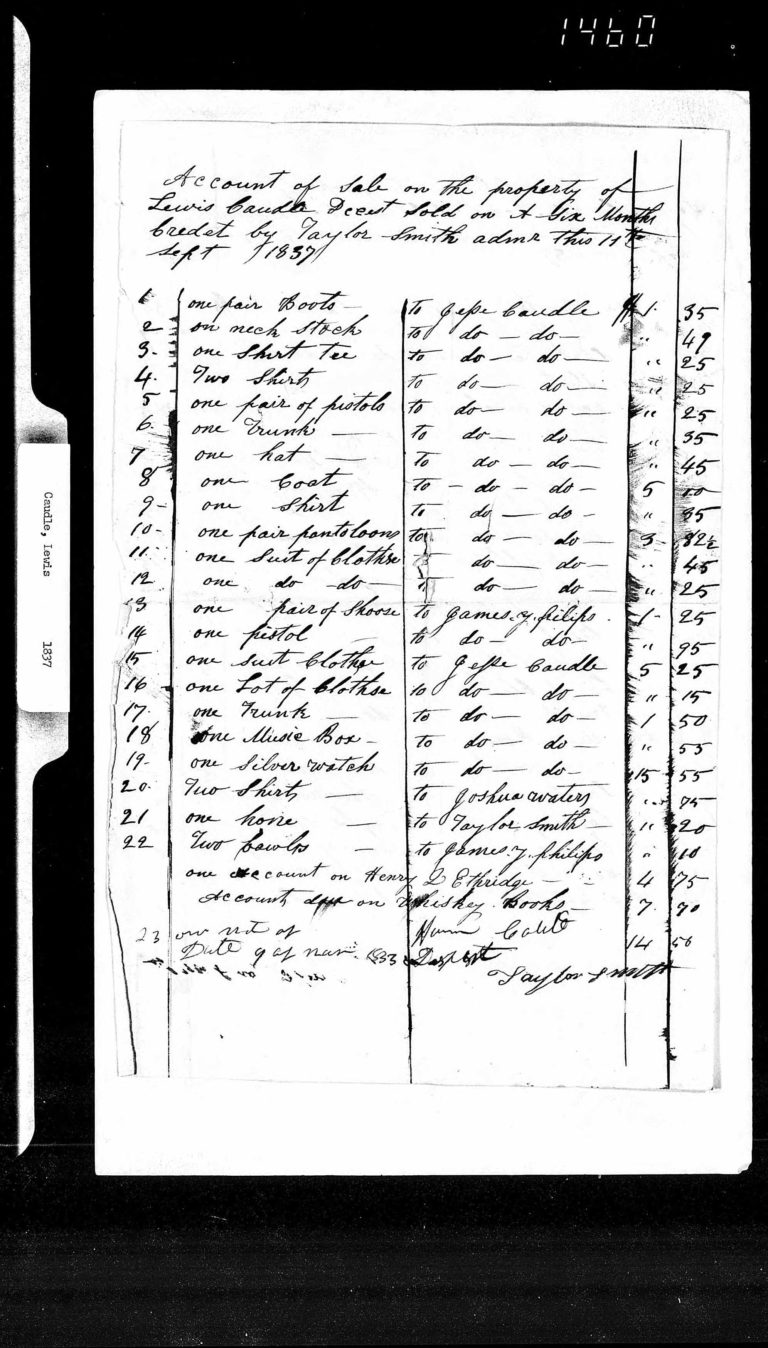 1460
Caudle, Lewis 1837
Account of Sale on the property of
Lewis Caudle Decest Sold on A Six Months
Credet by Taylor Smith admr this 11th
Sept 1837
1 one pair Boots — to Jesse Caudle $ 1. 35
2 on neck Stock to do — do — " 49
3 one Shirt Tee to do — do — " 25
4 Two Shirts to do — do — " 25
5 one pair of pistols to do — do — " 25
6 one Trunk — to do — do — " 35
7 one hat — to do — do — " 45
8 one Coat to do — do — 5 10
9 one Shirt to do — do — " 85
10 one pair pantoloons to do — do — 3 82½
11 one Suit of Clothse do — do — " 45
12 one do do — do — do — " 25
13 one pair of Shoose to James. y. philips 1 25
14 one pistol to do — do — " 95
15 one Suit Clothse to Jesse Caudle 5 25
16 one Lot of Clothse to do — do — " 15
17 one Trunk — to do — do — 1 50
18 one Music Box — to do — do — " 55
19 one Silver watch to do — do — 15 55
20 Two Shirts — to Joshua waters " 75
21 one hone — to Taylor Smith — " 20
22 Two bowls — to James. y. philips " 10
one account on Henry Ethridge — 4 75
Account on Whiskey Books — 7 70
23 of 14 50
Date 9 of
Taylor Smith